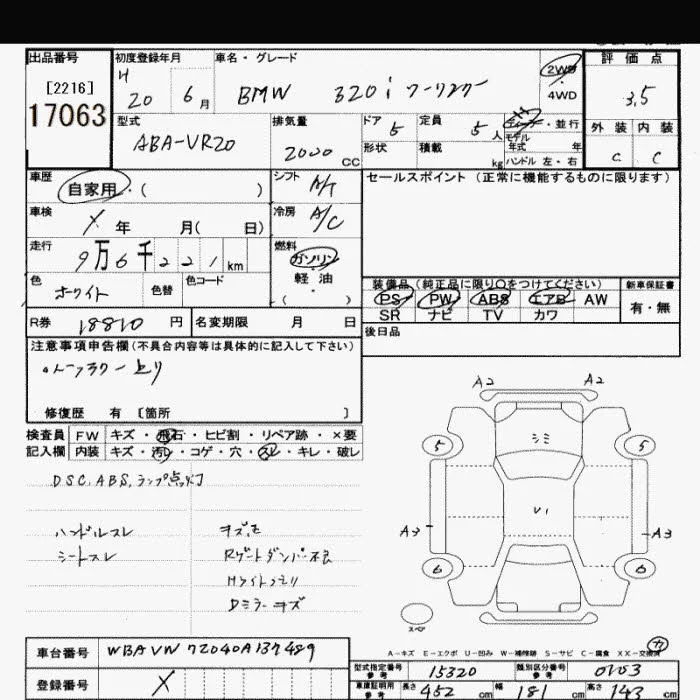 出品番号 初度登録年月 車名・グレード 評価点
[2216] H 2WD
17063 20 6月 BMW 320i ツーリング ・4WD 3.5
型式 排気量 ドア 定員 ディーラー・並行 外装 内装
ABA-VR20 2000cc 5 5人 モデル年式 年 C C
形状 積載 kg ハンドル 左・右
車歴 自家用・( ) シフト A/T セールスポイント (正常に機能するものに限ります)
車検 X 年 月( 日) 冷房 A/C
走行 9万6千221km 燃料 ガソリン・軽油・( )
色 ホワイト 色替 色コード 装備品(純正品に限り○をつけてください) 新車保証書
PS PW ABS エアB AW 有・無
SR ナビ TV カワ
R券 18810円 名変期限 月 日 後日品
注意事項申告欄(不具合内容等は具体的に記入して下さい)
修復歴 有 〔箇所 〕
検査員 FW キズ・飛石・ヒビ割・リペア跡・×要
記入欄 内装 キズ・汚レ・コゲ・穴・スレ・キレ・破レ
DSC,ABS,ランプ点灯
ハンドルスレ キズ凹
シートスレ Rゲートダンパー不良
Hライトクモリ
Dミラーキズ
A2 A2
シミ
5 5
U1
A3 A3
6 6
スペア
A-キズ E-エクボ U-凹み W-補修跡 S-サビ C-腐食 XX-交換済
車台番号 WBAVW72040A137489
登録番号 X
型式指定番号 参考 15320 類別区分番号 参考 0153
車庫証明用 参考 長さ 452cm 幅 181cm 高さ 143cm